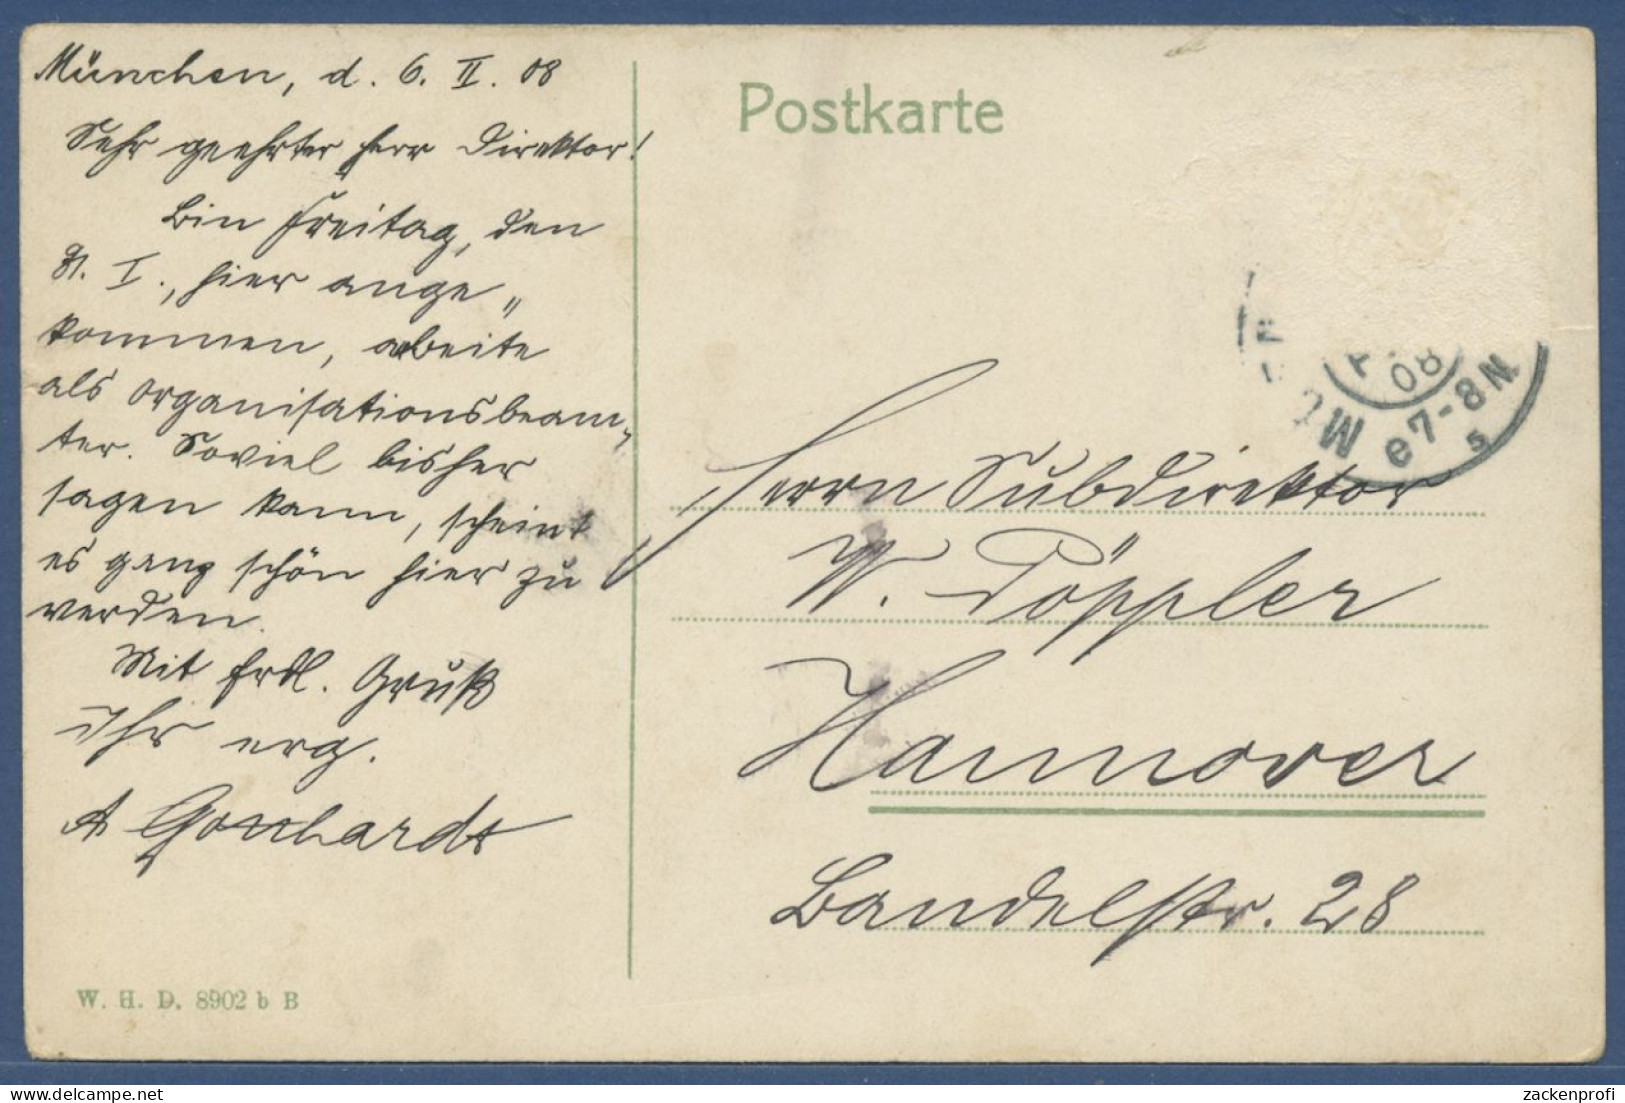 München, d. 6. II. 08
Sehr geehrter Herr Direktor!
Bin Freitag, den
31. I., hier ange„
kommen, arbeite
als Organisationsbeam„
ter. Soviel bisher
sagen kann, scheint
es ganz schön hier zu
werden.
Mit frdl. Gruß
Ihr erg.
A Gonhardt
W. H. D. 8902 b B
Postkarte
08
MÜ e7-8N
5
Herrn Subdirektor
W. Döppler
Hannover
Bandelstr. 28
zackenprofi